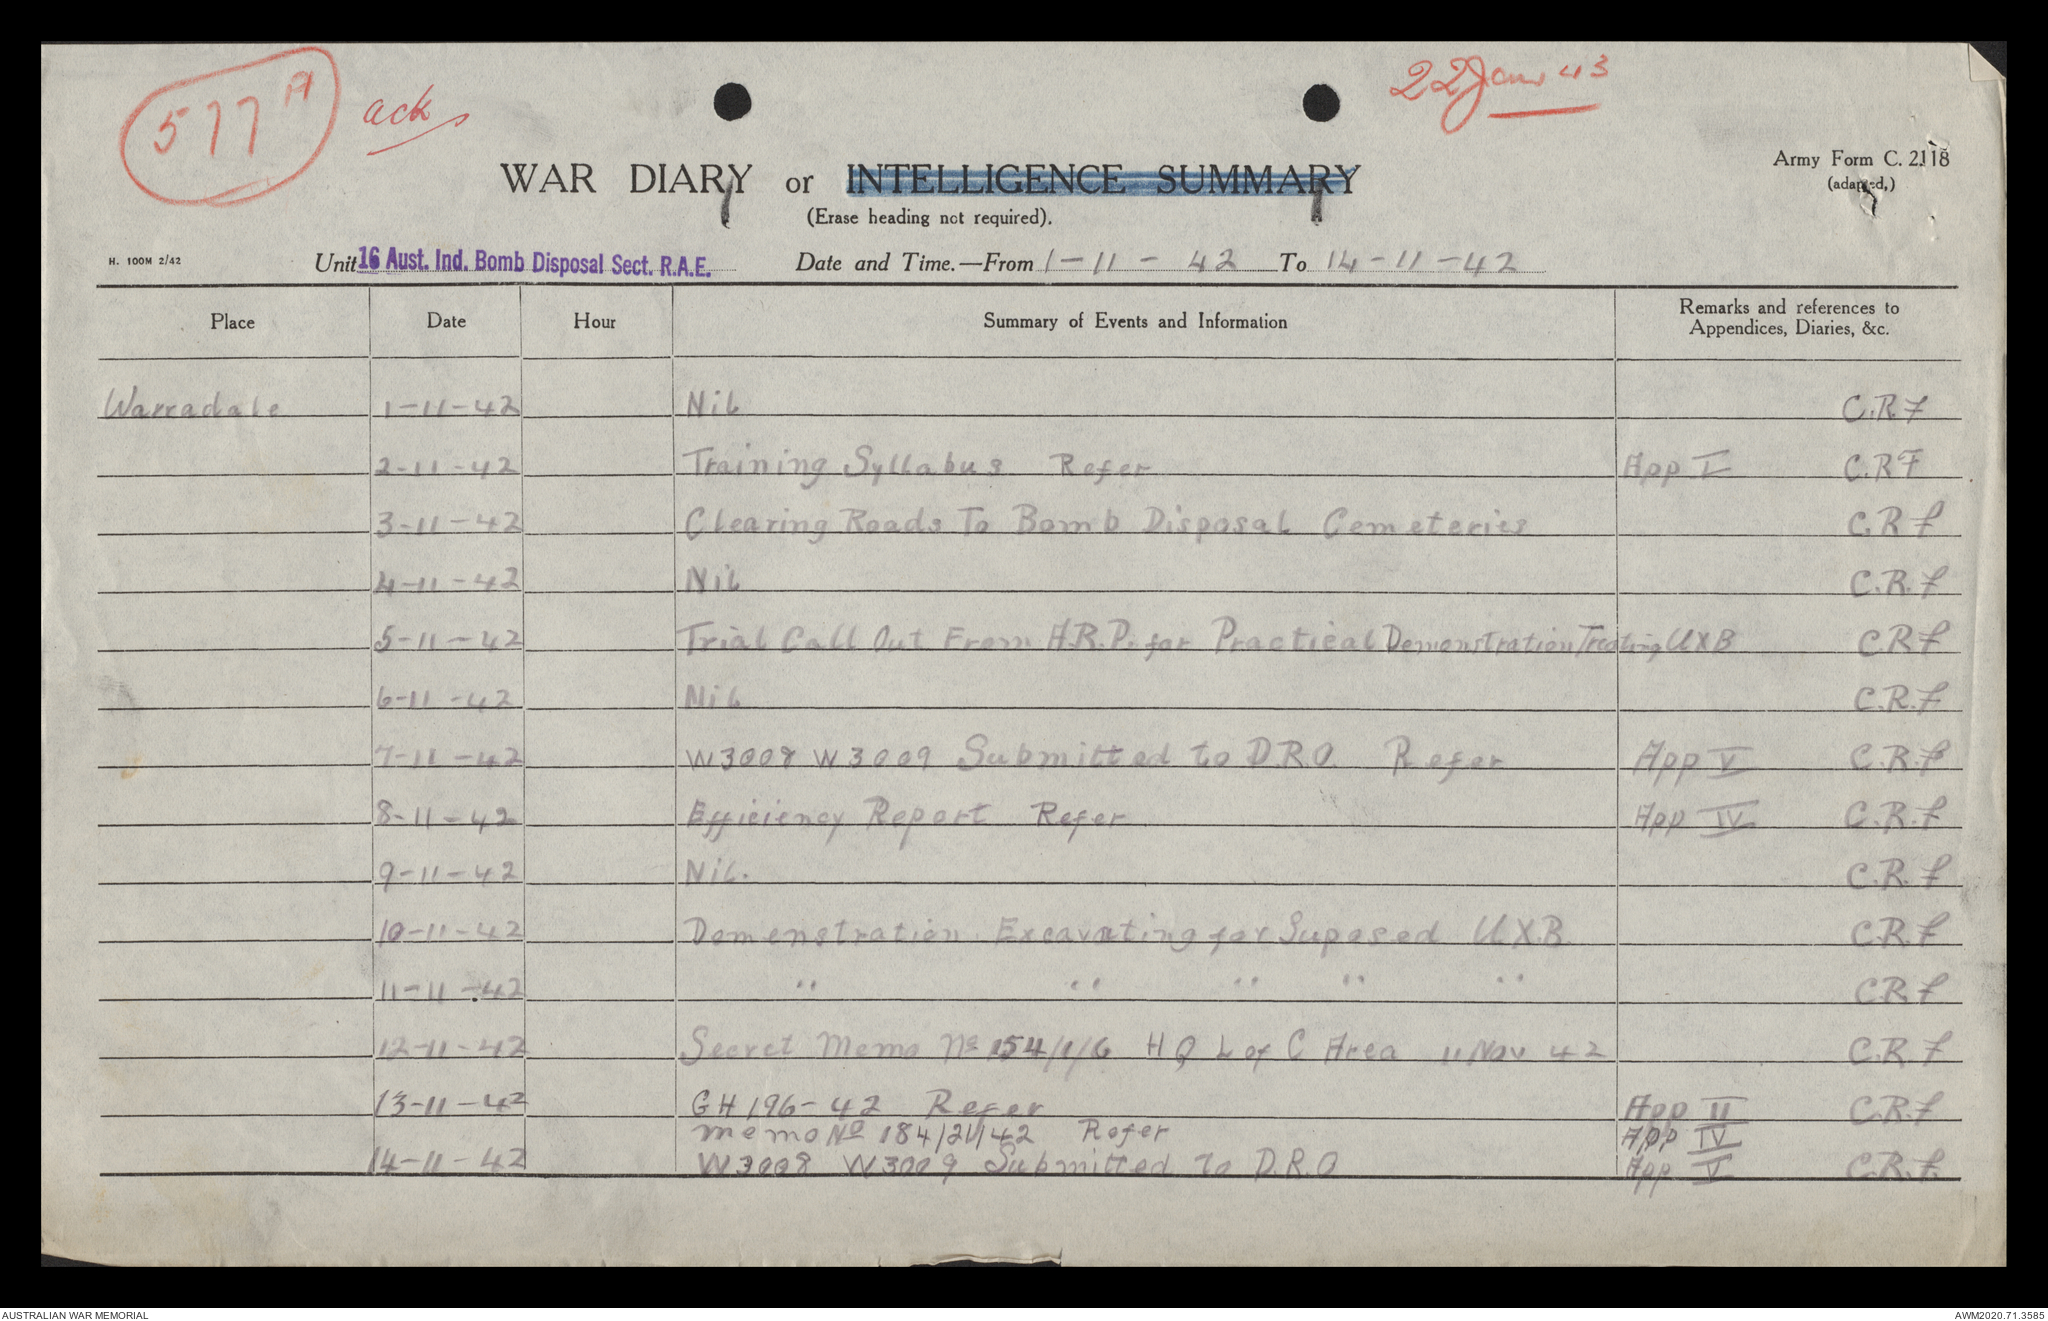 577 A
ack
22 Jan 43
Army Form C. 2118
(adapted,)
WAR DIARY or INTELLIGENCE SUMMARY
(Erase heading not required).
H. 100M 2/42
Unit 16 Aust. Ind. Bomb Disposal Sect. R.A.E. Date and Time.—From 1-11-42 To 14-11-42
Place Date Hour Summary of Events and Information Remarks and references to Appendices, Diaries, &c.
Warradale 1-11-42 Nil C.R.F
2-11-42 Training Syllabus Refer App I C.R.F
3-11-42 Clearing Roads To Bomb Disposal Cemeteries C.R.F
4-11-42 Nil C.R.F
5-11-42 Trial Call Out From A.R.P. for Practical Demonstration Treating UXB C.R.F
6-11-42 Nil C.R.F
7-11-42 W3008 W3009 Submitted to D.R.O. Refer App V C.R.F
8-11-42 Efficiency Report Refer App IV C.R.F
9-11-42 Nil. C.R.F
10-11-42 Demenstration Excavating for Suposed U.X.B. C.R.F
11-11-42 " " " " " C.R.F
12-11-42 Secret Memo No 154/1/6 H Q L of C Area 11 Nov 42 C.R.F
13-11-42 GH 196-42 Refer App II C.R.F
Memo No 184/21/42 Refer App IV
14-11-42 W3008 W3009 Submitted To D.R.O App V C.R.F.
AUSTRALIAN WAR MEMORIAL
AWM2020.71.3585